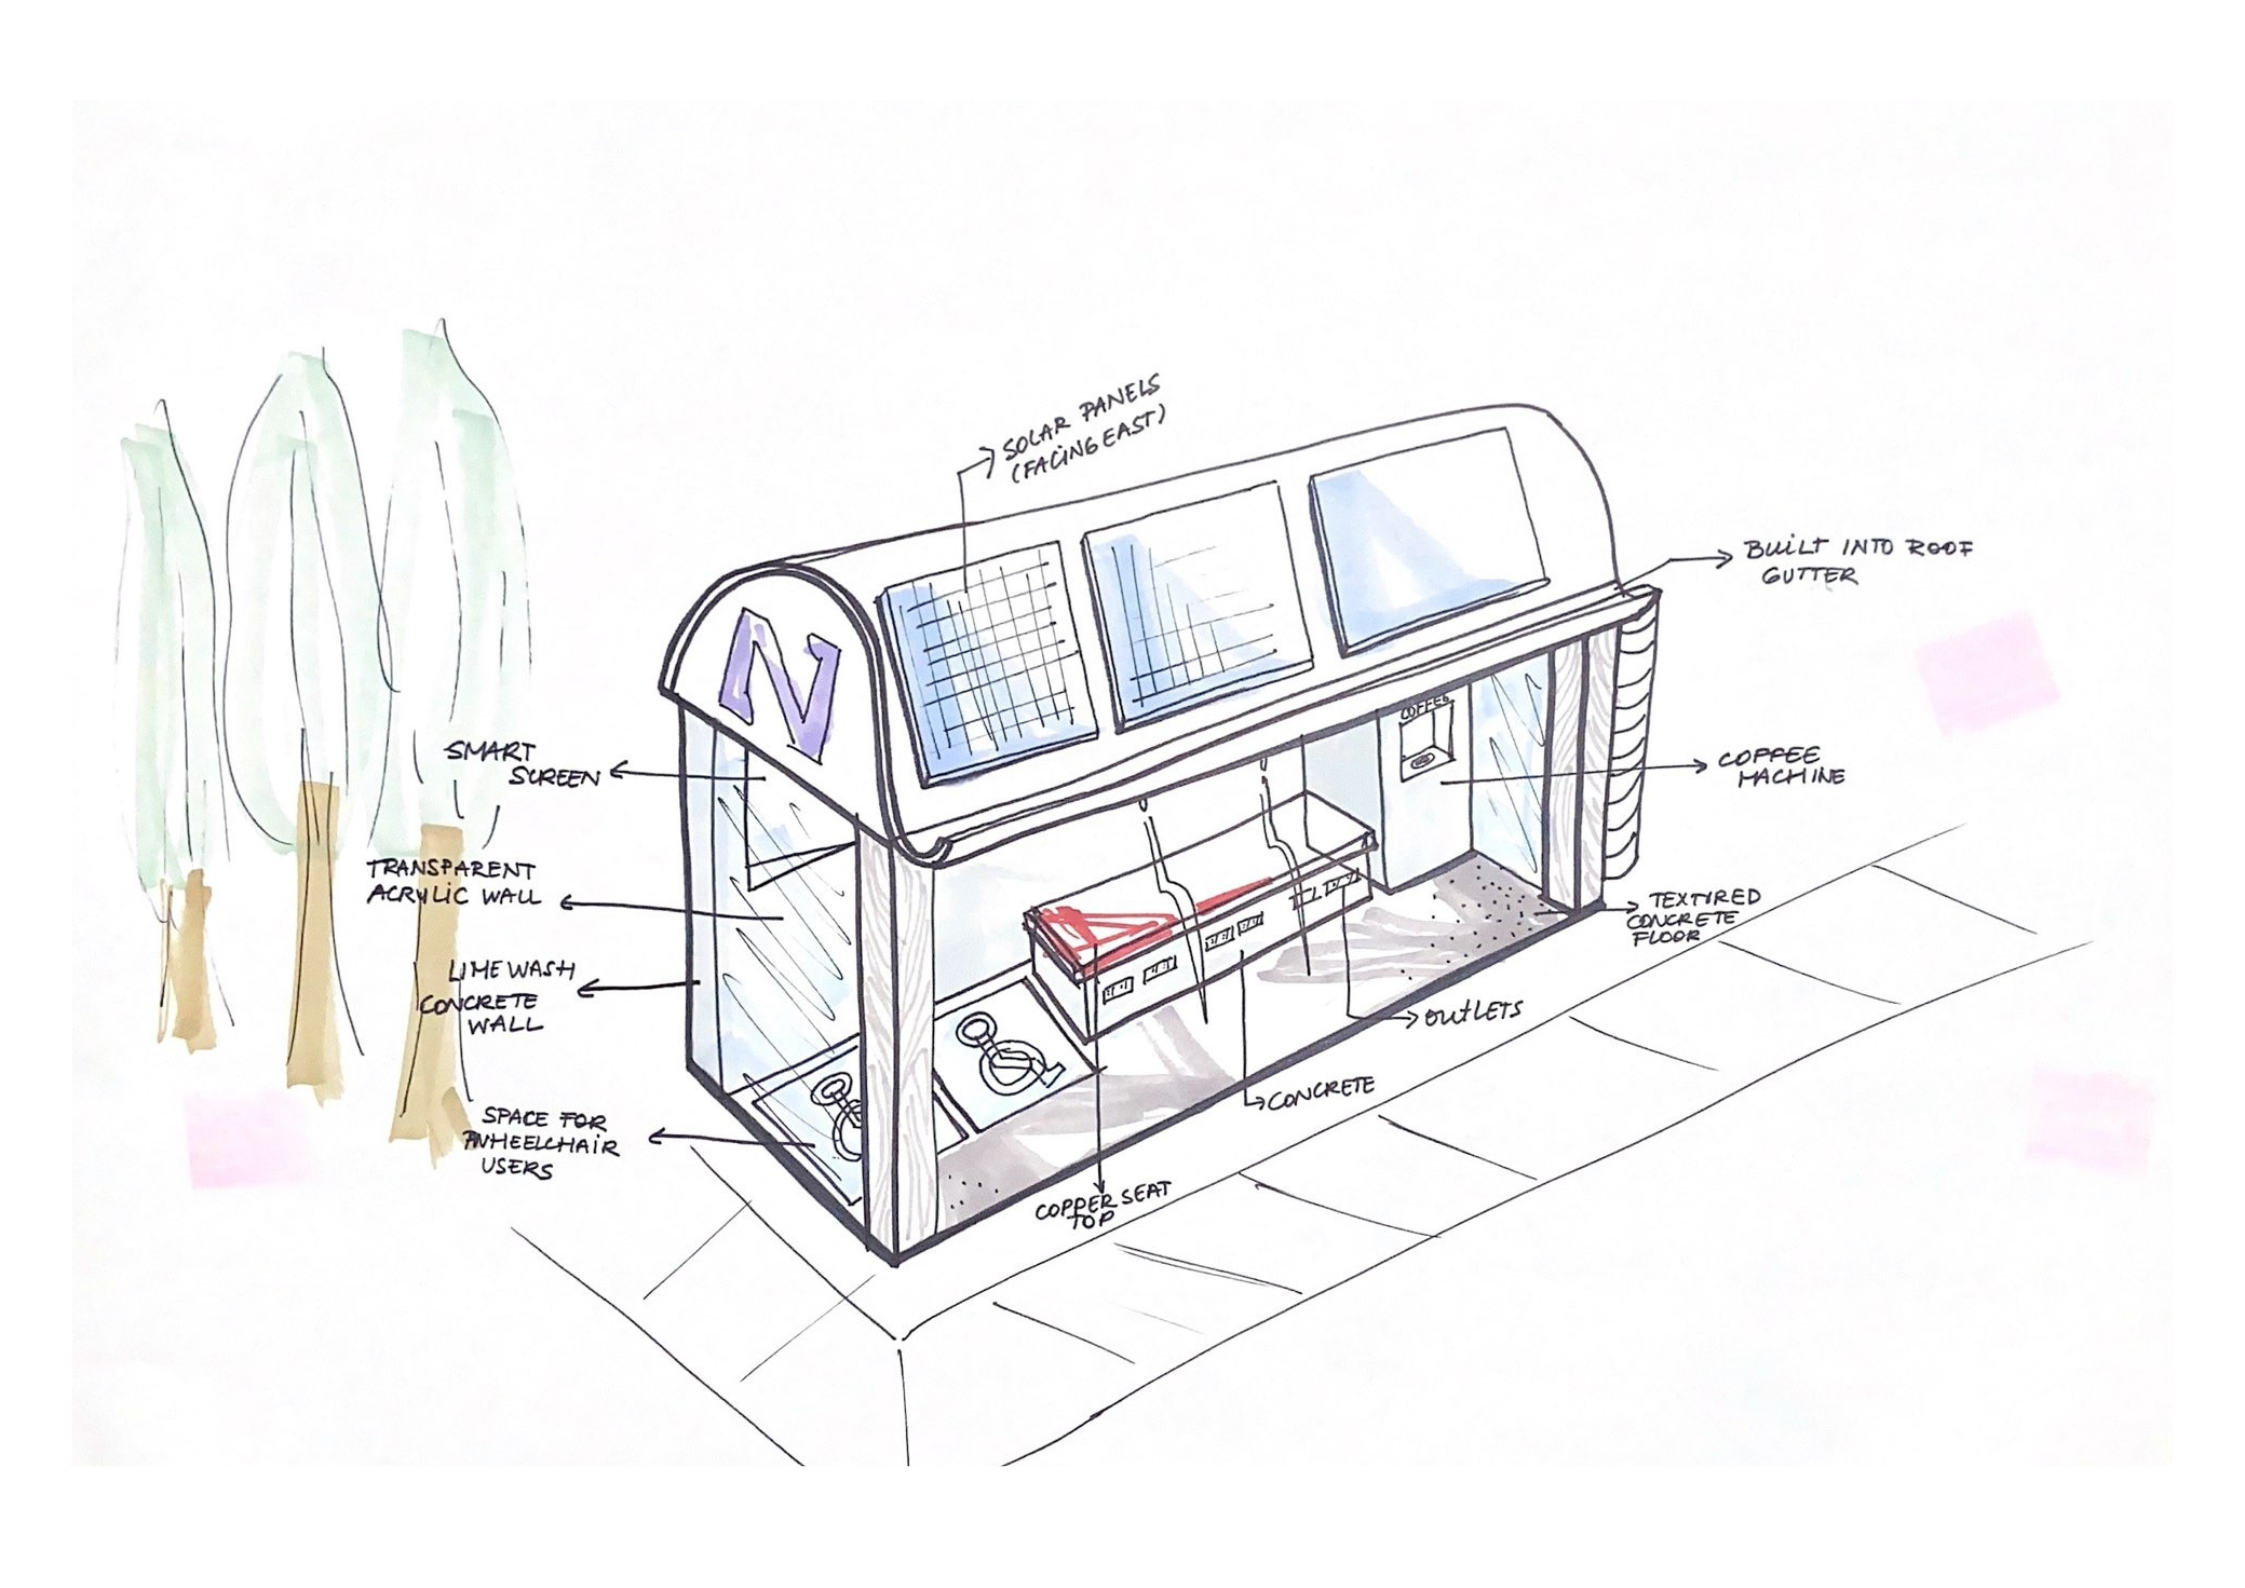 SOLAR PANELS
(FACING EAST)
BUILT INTO ROOF
GUTTER
N
SMART
SCREEN
COFFEE
COFFEE
MACHINE
TRANSPARENT
ACRYLIC WALL
TEXTIRED
CONCRETE
FLOOR
LIME WASH
CONCRETE
WALL
OUTLETS
CONCRETE
SPACE FOR
WHEELCHAIR
USERS
COPPER SEAT
TOP